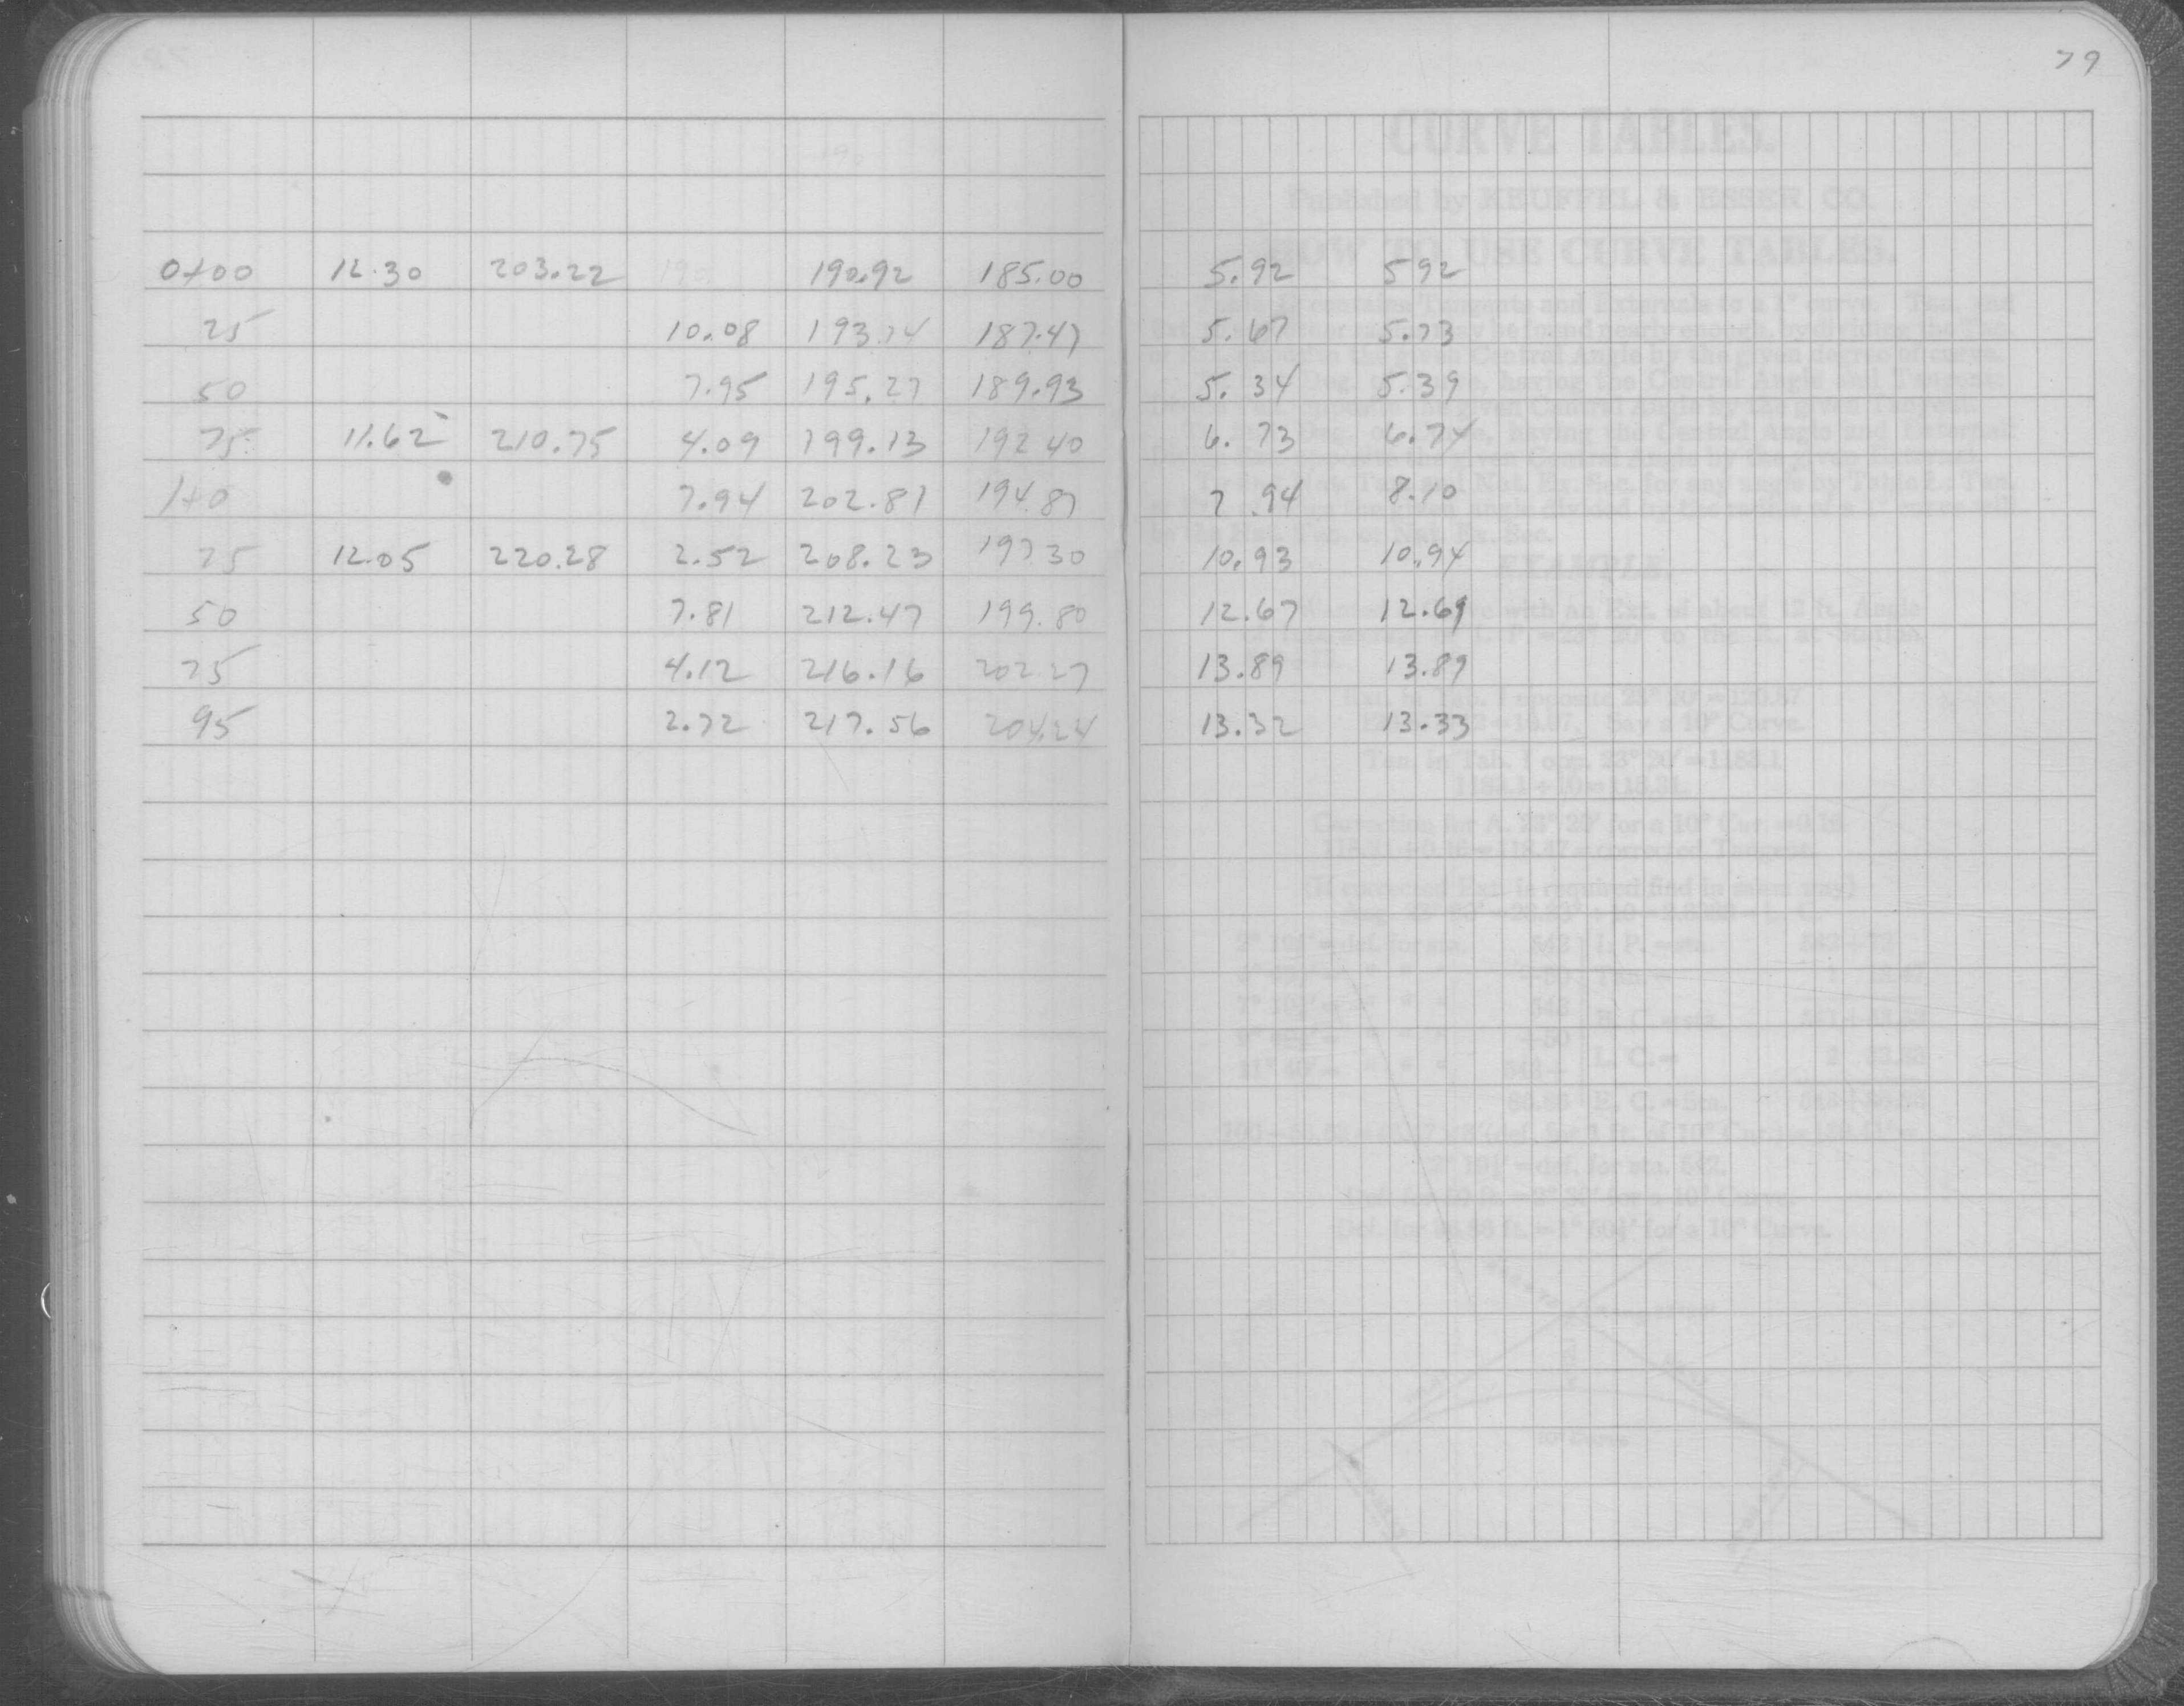 79
0+00 12.30 203.22 190.92 185.00 5.92 592
25 10.08 193.14 187.47 5.67 5.73
50 7.95 195.27 189.93 5.34 5.39
75 11.62 210.75 4.09 199.13 192 40 6.73 6.74
1+0 7.94 202.81 194.87 7.94 8.10
25 12.05 220.28 2.52 208.23 197 30 10.93 10.94
50 7.81 212.47 199.80 12.67 12.69
75 4.12 216.16 202 27 13.89 13.89
95 2.72 217.56 204.24 13.32 13.33